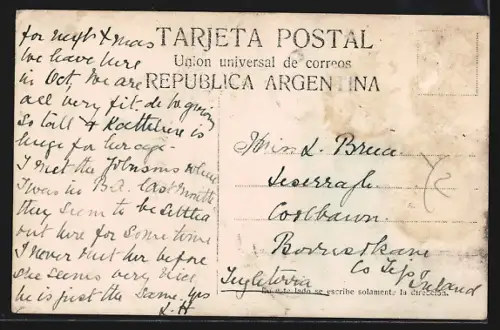 for next Xmas
We leave here
in Oct. We are
all very fit.
So tall & Kathlene is
huge for her age.
I met the Johnsons when
I was in B.A. last month
they seem to be settled
out here for some time
I never met her before
She seems very nice
he is just the same. Yrs
L.H
TARJETA POSTAL
Union universal de correos
REPUBLICA ARGENTINA
Miss L. Bruce
Coolbawn.
Borrisokane
Co Tipp
Ireland
Inglaterra
En este lado se escribe solamente la dirección.